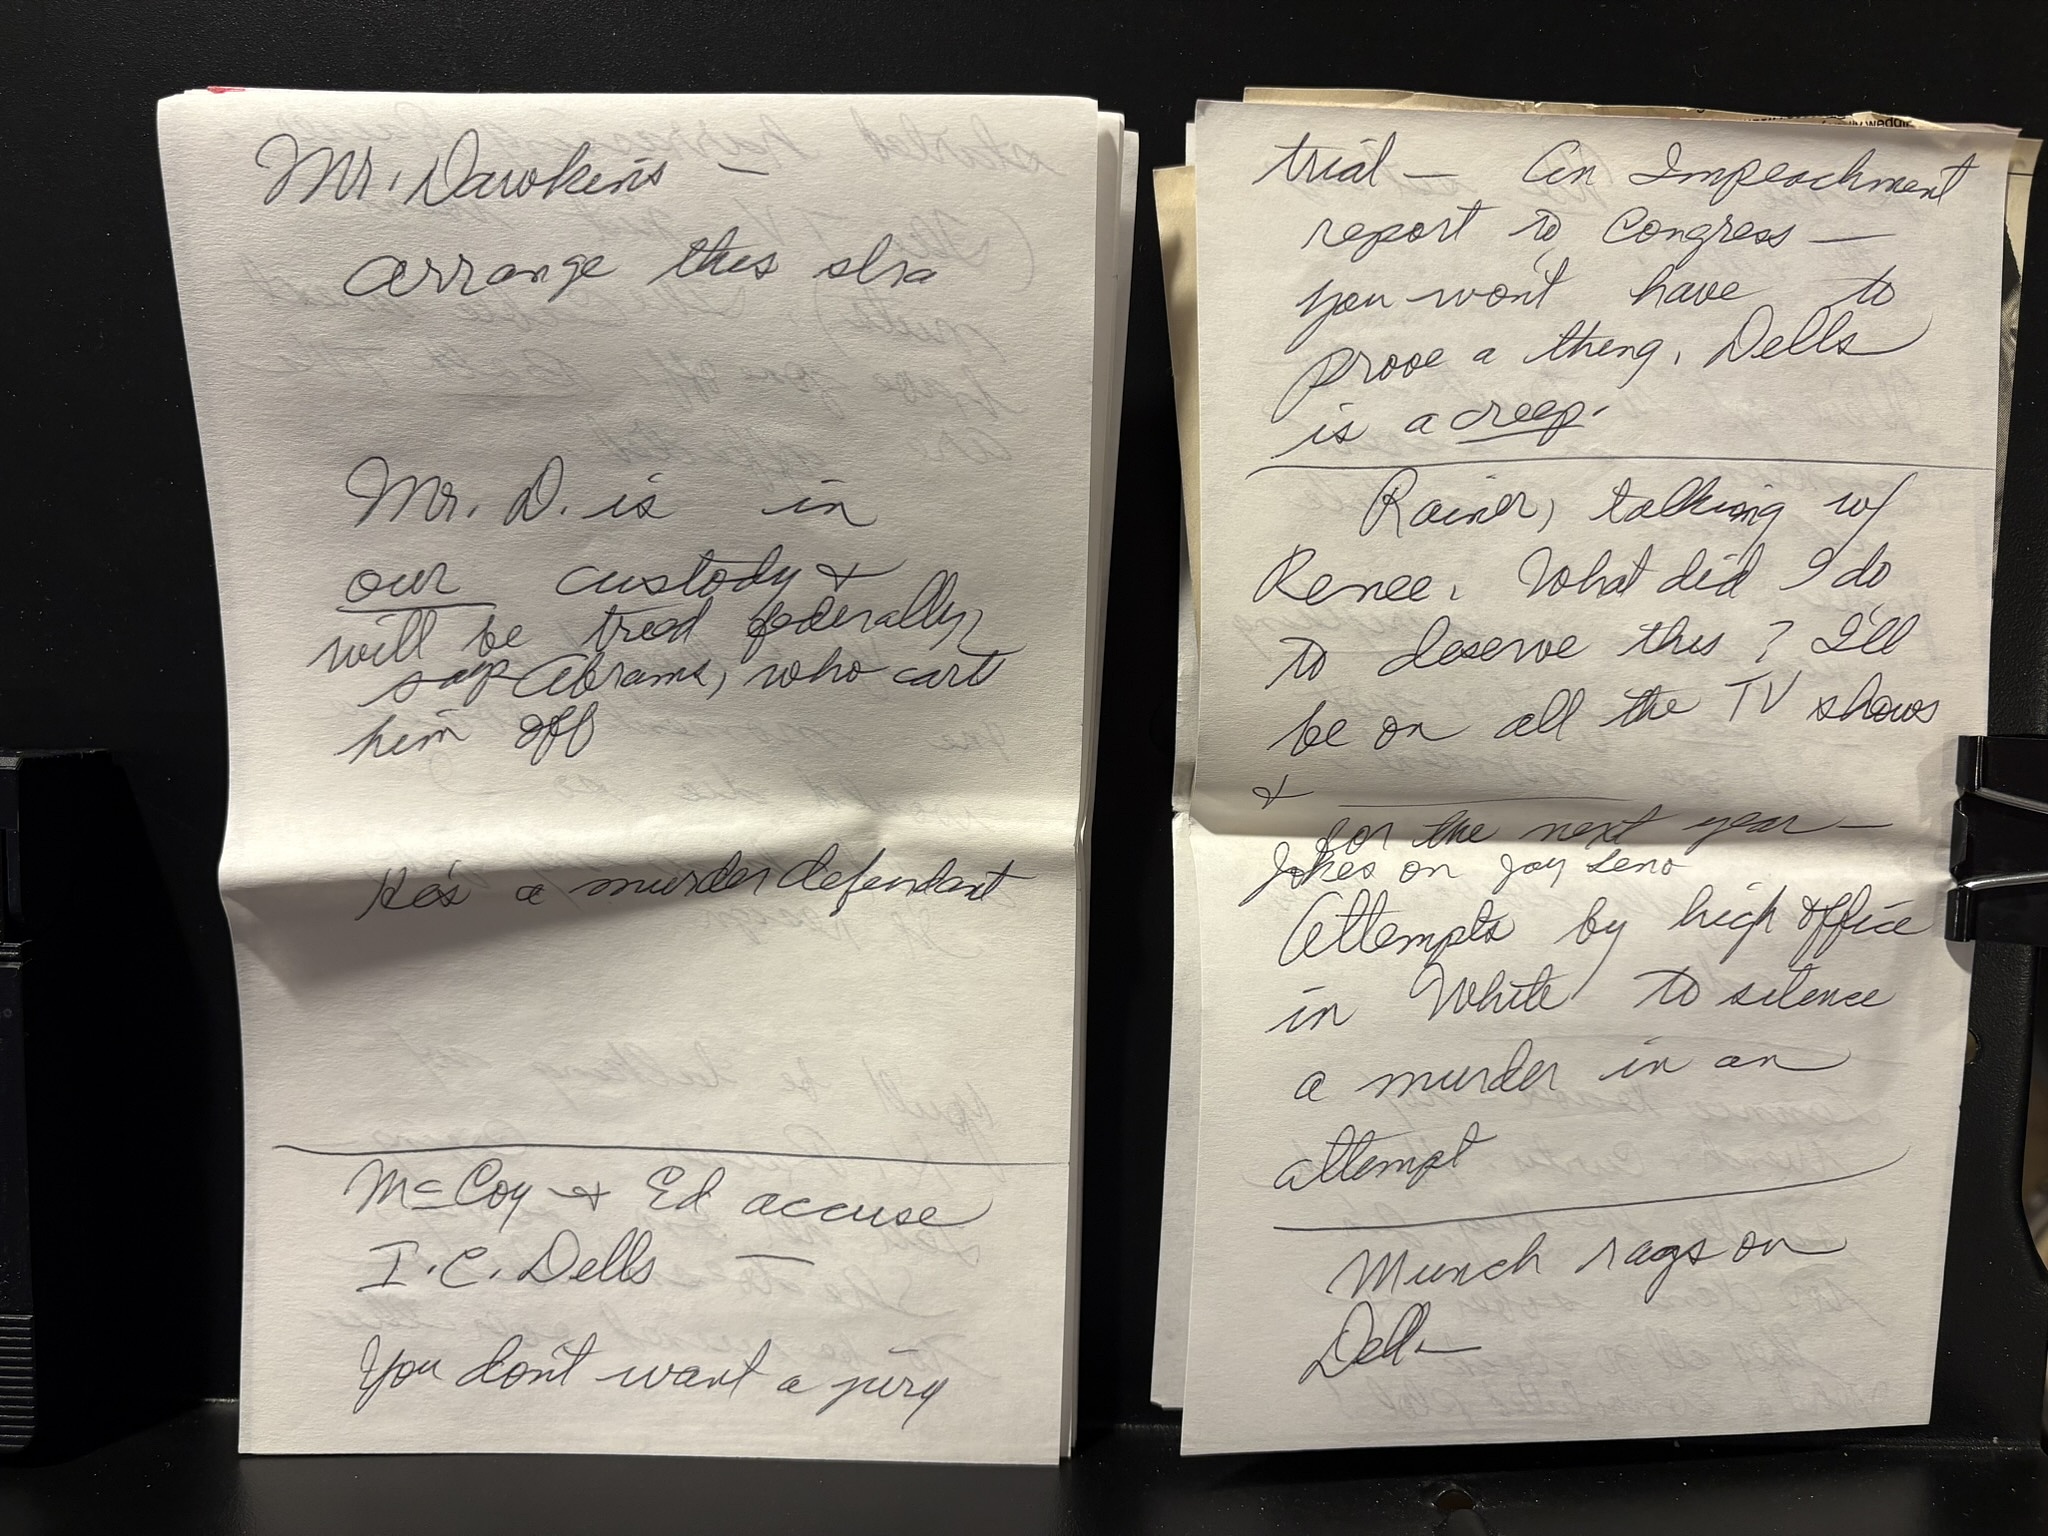 Mr. Dawkins —
arrange this
Mr. D. is in
our custody &
will be tried federally,
says Abrams, who carts
him off
He's a murder defendant
McCoy & Ed accuse
I.C. Dells —
You don't want a jury
trial — An Impeachment
report to Congress —
you won't have to
prove a thing. Dells
is a creep.
Rainer, talking w/
Renee. What did I do
to deserve this? I'll
be on all the TV shows
&
for the next year —
Jokes on Jay Leno
Attempts by high office
in White to silence
a murder in an
attempt
Munch rags on
Dells